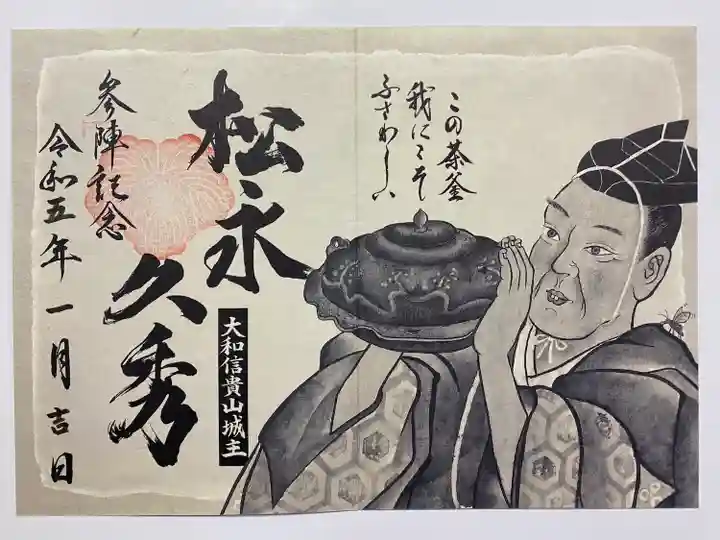 この茶釜
我にこそ
ふさわしい
松永
久秀
大和信貴山城主
参陣記念
令和五年一月吉日